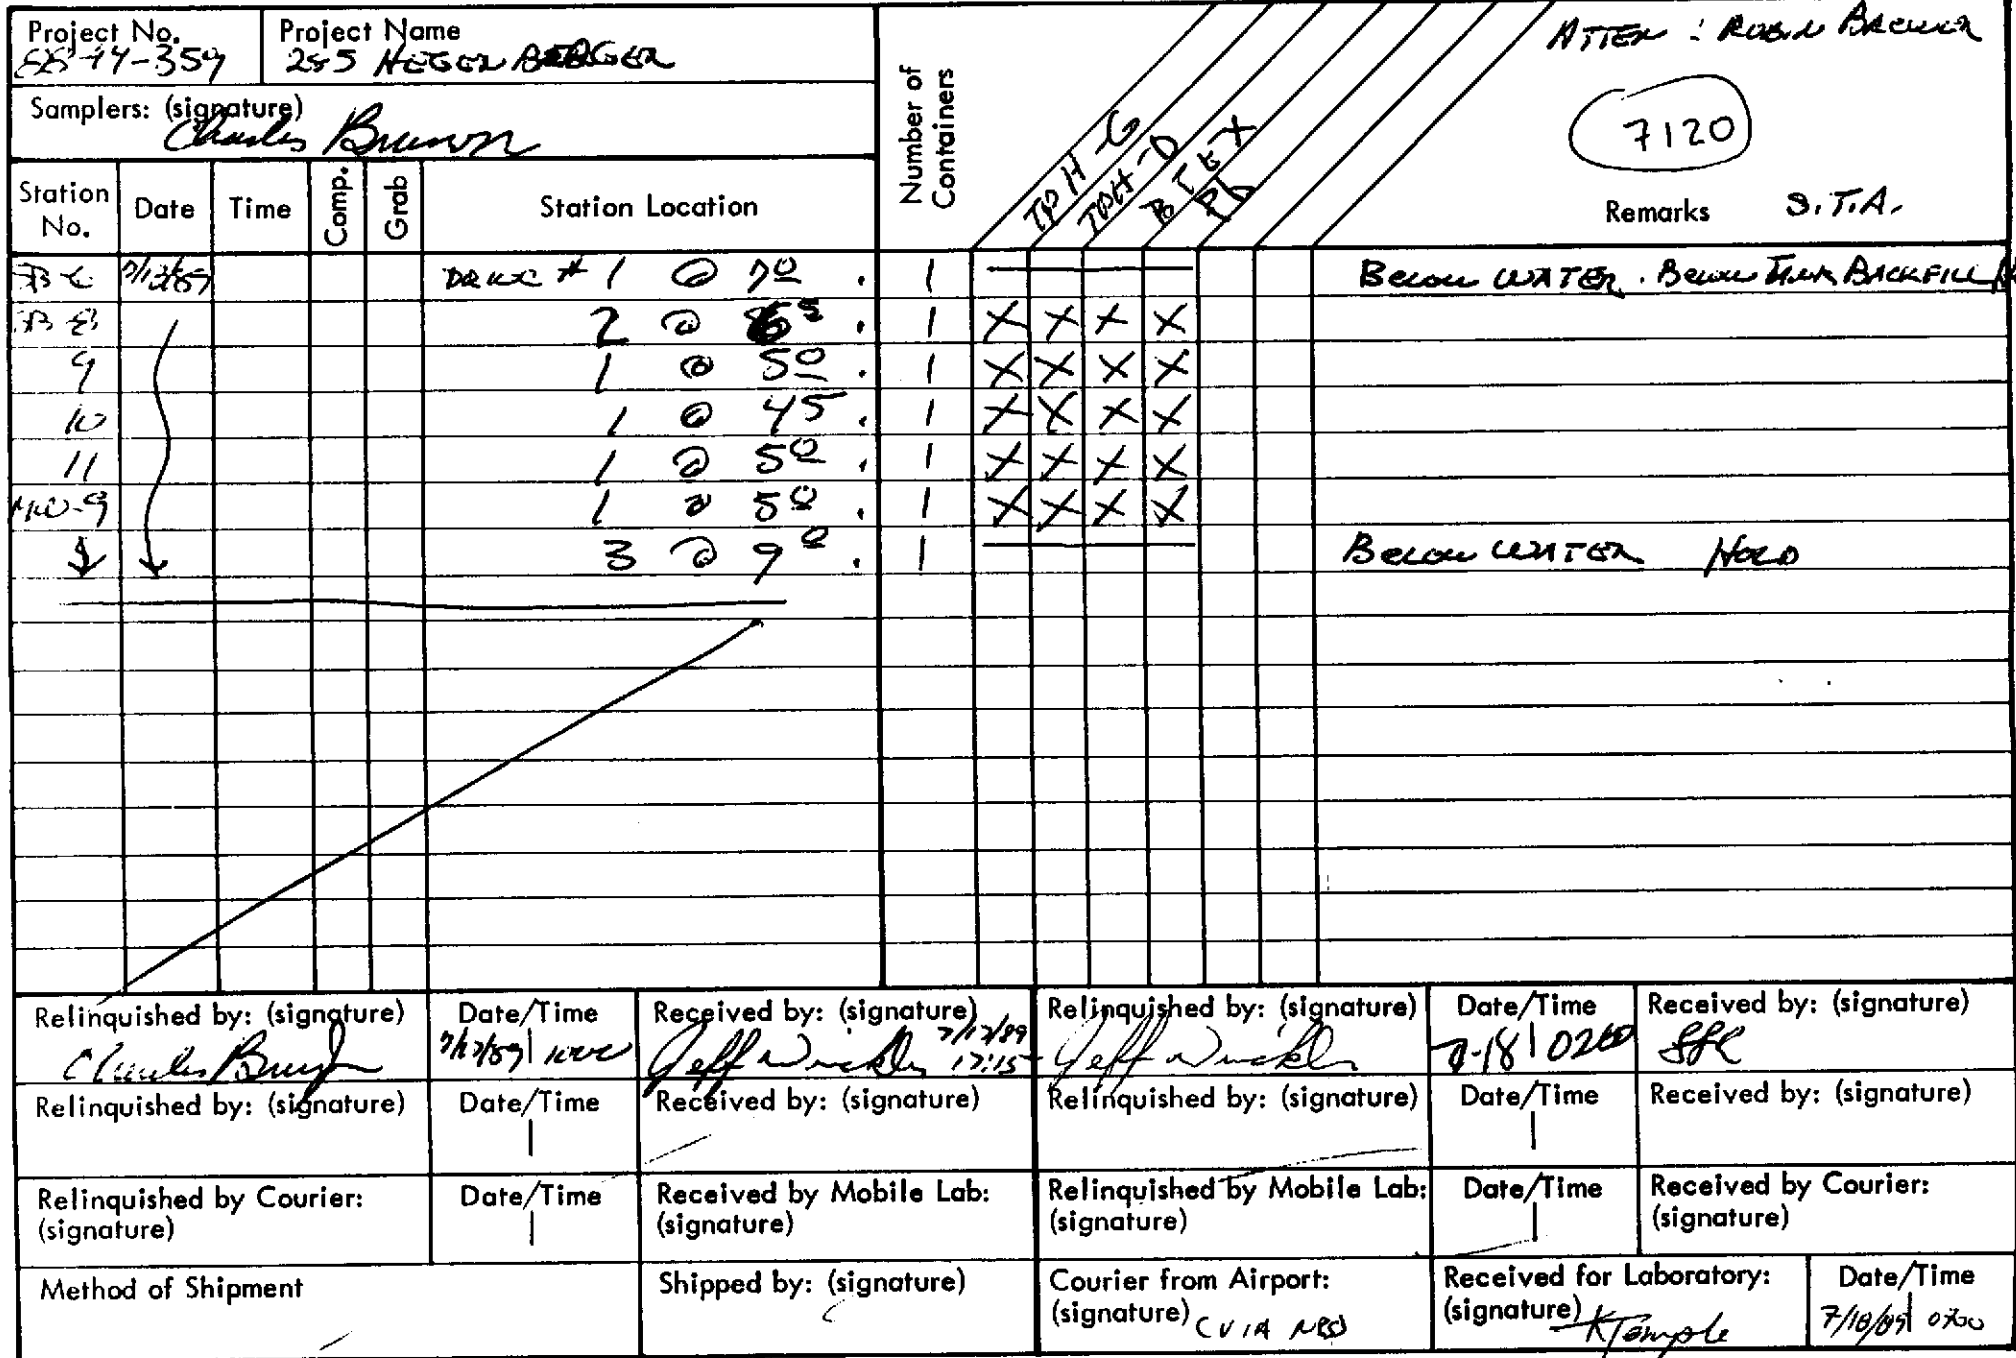 Project No.
Project Name
285 HEGENBERGER
ATTEN : ROBIN BREWER
7120
Samplers: (signature)
Charles
Number of Containers
TPH-G
TPH-D
BTEX
Pb
Station No.
Date
Time
Comp.
Grab
Station Location
Remarks S.T.A.
# 1 @ 7º . 1 BELOW WATER. BELOW TANK BACKFILL
2 @ . 1 X X X X
9 1 @ 5º . 1 X X X X
10 1 @ 45 . 1 X X X X
11 1 @ 5º . 1 X X X X
MW-9 1 @ 5º . 1 X X X X
3 @ 9º . 1 BELOW WATER HOLD
Relinquished by: (signature)
Charles
Date/Time
Received by: (signature)
Jeff Winckler 17:15
Relinquished by: (signature)
Jeff Winckler
Date/Time
Received by: (signature)
Relinquished by: (signature)
Date/Time
Received by: (signature)
Relinquished by: (signature)
Date/Time
Received by: (signature)
Relinquished by Courier: (signature)
Date/Time
Received by Mobile Lab: (signature)
Relinquished by Mobile Lab: (signature)
Date/Time
Received by Courier: (signature)
Method of Shipment
Shipped by: (signature)
Courier from Airport: (signature)
Received for Laboratory: (signature) KTemple
Date/Time
7/18/89